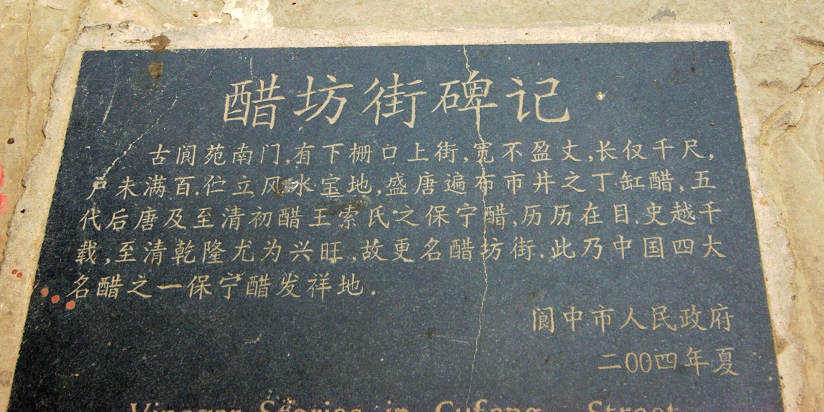 醋坊街碑记
古阆苑南门,有下栅口上街,宽不盈丈,长仅千尺,
户未满百.伫立风水宝地,盛唐遍布市井之丁缸醋,五
代后唐及至清初醋王索氏之保宁醋,历历在目.史越千
载,至清乾隆尤为兴旺,故更名醋坊街.此乃中国四大
名醋之一保宁醋发祥地.
阆中市人民政府
二00四年夏
Vinegar Stories in Cufang Street